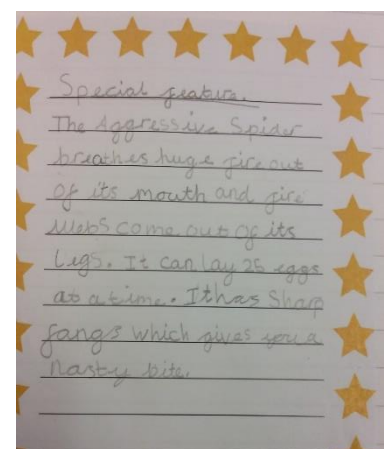 Special feature.
The Aggressive Spider
breathes huge fire out
of its mouth and fire
webs come out of its
Legs. It can lay 25 eggs
at a time. It has Sharp
fangs which gives you a
nasty bite.